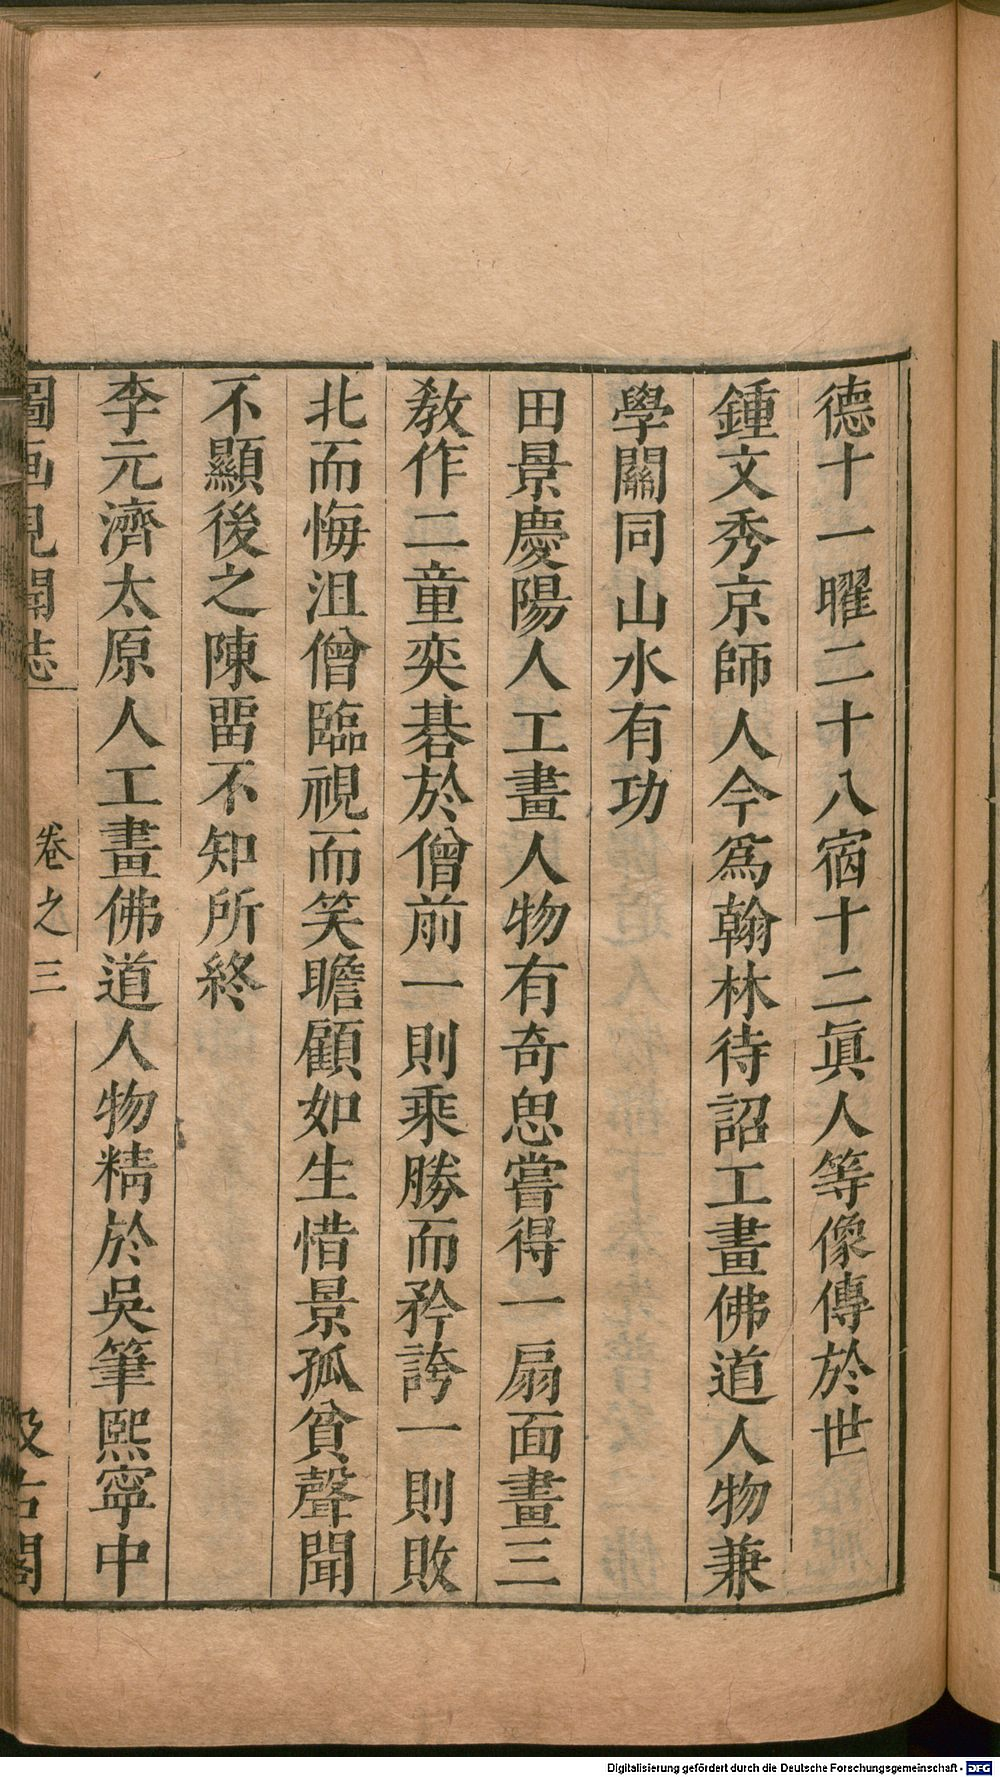 德十一曜二十八宿十二眞人等像傳於世
鍾文秀京師人今爲翰林待詔工畫佛道人物兼
學關同山水有功
田景慶陽人工畫人物有奇思嘗得一扇面畫三
敎作二童奕碁於僧前一則乘勝而矜誇一則敗
北而悔沮僧臨視而笑瞻顧如生惜景孤貧聲聞
不顯後之陳畱不知所終
李元濟太原人工畫佛道人物精於吳筆熙寧中
圖画見聞志 卷之三 汲古閣
Digitalisierung gefördert durch die Deutsche Forschungsgemeinschaft - DFG